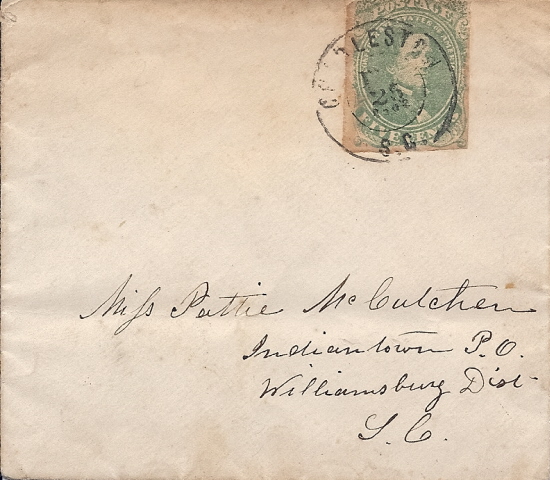 POSTAGE
CHARLESTON
26
S.C.
FIVE CENTS
Miss Pattie McCutchen
Indiantown P.O.
Williamsburg Dist
S. C.